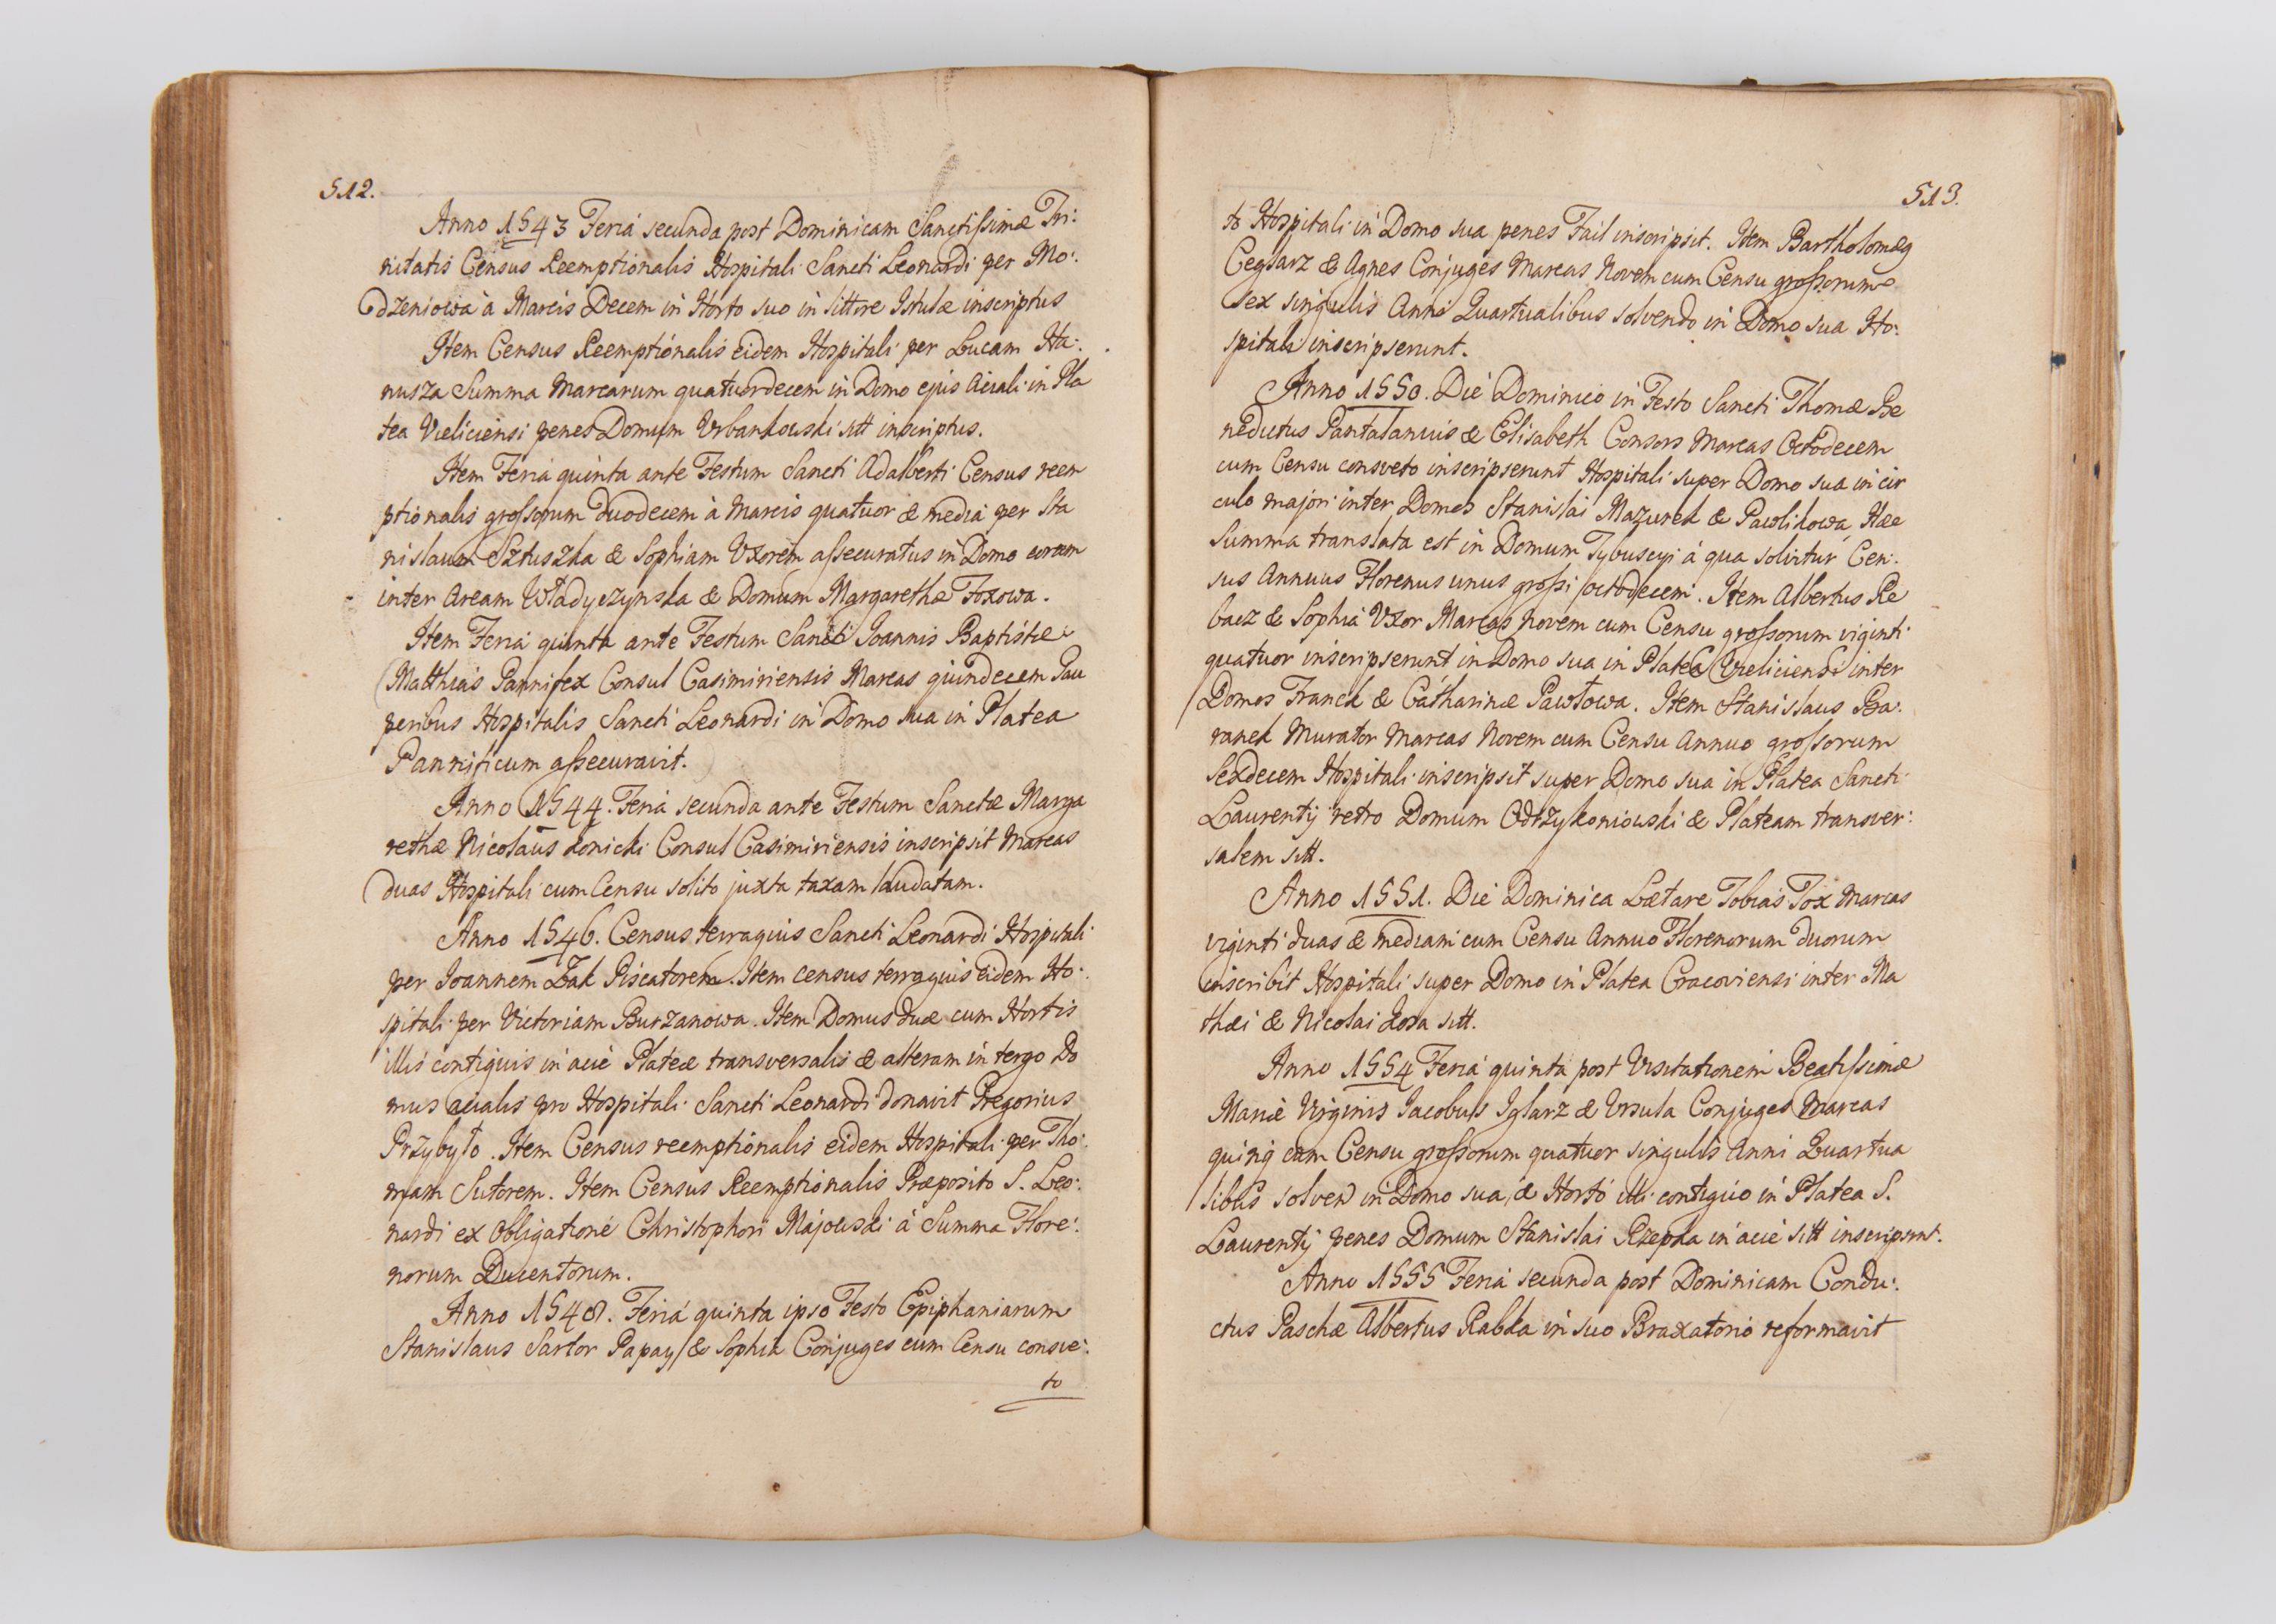 512.
Anno 1543 Feria secunda post Dominicam Sanctissimæ Tri:
nitatis Census Reemptionalis Hospitali Sancti Leonardi per Mo:
dzeniowa à Marcis Decem in Horto suo in littore Istulæ inscriptus
Item Census Reemptionalis eidem Hospitali per Lucam Ha:
nusza Summa Marcarum quatuordecem in Domo ejus aciali in Pla
tea Vieliciensi penes Domum Urbankowski sitt inscriptus.
Item Feria quinta ante Festum Sancti Adalberti Census reem
ptionalis grossorum duodecem à Marcis quatuor & media per Sta
nislaum Sztuszka & Sophiam Uxorem assecuratus in Domo eorum
inter Aream Władyczynska & Domum Margarethæ Foxowa.
Item Feria quinta ante Festum Sancti Joannis Baptistæ
Matthias Pannifex Consul Casimiriensis Marcas quindecem Pau
peribus Hospitalis Sancti Leonardi in Domo sua in Platea
Pannificum assecuravit.
Anno 1544. Feria secunda ante Festum Sanctæ Marga
rethæ Nicolaus Konicki Consul Casimiriensis inscripsit Marcas
duas Hospitali cum Censu solito juxta taxam laudatam.
Anno 1546. Census terragius Sancti Leonardi Hospitali
per Joannem Żak Piscatorem. Item census terragius eidem Ho:
spitali per Victoriam Burzanowa. Item Domus duæ cum Hortis
illis contiguis in acie Plateæ transversalis & alteram in tergo Do
mus acialis pro Hospitali Sancti Leonardi donavit Gregorius
Przybyło. Item Census reemptionalis eidem Hospitali per Tho:
mam Sutorem. Item Census Reemptionalis Præposito S. Leo:
nardi ex Obligatione Christophori Majowski à Summa Flore:
norum Ducentorum.
Anno 1548. Feria quinta ipso Festo Epiphaniarum
Stanislaus Sartor Papay & Sophia Conjuges cum Censu consve:
to
513.
to Hospitali in Domo sua penes Fail inscripsit. Item Bartholomæg
Ceglarz & Agnes Conjuges Marcas Novem cum Censu grossorum
sex singulis Anni Quartualibus solvendo in Domo sua Ho:
spitali inscripserunt.
Anno 1550. Die Dominico in Festo Sancti Thomæ Be
nedictus Pantalanuis & Elisabeth Consors Marcas Octodecem
cum Censu consveto inscripserunt Hospitali super Domo sua in cir
culo majori inter Domos Stanislai Mazurek & Pawlikowa, Hæc
Summa translata est in Domum Tybuscyi à qua solvitur Cen:
sus Annuus Florenus unus grossi octodecem. Item Albertus Re
bacz & Sophia Uxor Marcas Novem cum Censu grossorum viginti
quatuor inscripserunt in Domo sua in Platea Vieliciensi inter
Domos Franek & Catharinæ Pawłowa. Item Stanislaus Ba:
ranek Murator Marcas Novem cum Censu Annuo grossorum
Sexdecem Hospitali inscripsit super Domo sua in Platea Sancti
Laurentij retro Domum Odrzykoniowski & Plateam transver:
salem sitt.
Anno 1551. Die Dominica Lætare Tobias Fox Marcas
viginti duas & mediam cum Censu Annuo Florenorum duorum
inscribit Hospitali super Domo in Platea Cracoviensi inter Ma
thæi & Nicolai Koza sitt.
Anno 1554 Feria quinta post Visitationem Beatissimæ
Mariæ Virginis Jacobus Iglarz & Ursula Conjuges Marcas
quinq cum Censu grossorum quatuor singulis Anni Quartua
libus solven in Domo sua, & Horto illi contiguo in Platea S.
Laurentij penes Domum Stanislai Rzepka in acie sitt inscripsernt.
Anno 1555 Feria secunda post Dominicam Condu:
ctus Paschæ Albertus Rabka in suo Braxatorio reformavit